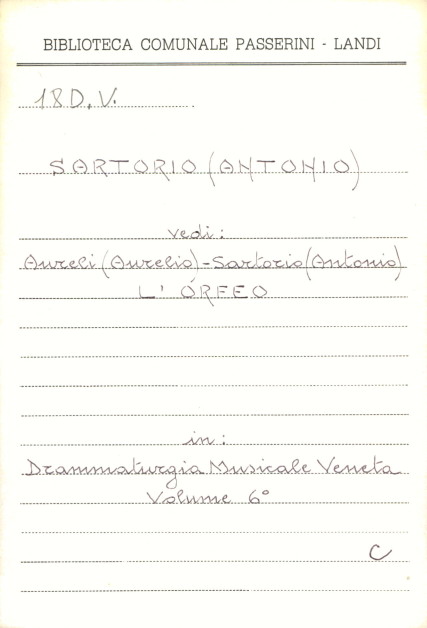 BIBLIOTECA COMUNALE PASSERINI - LANDI
18 D. V.
SARTORIO (ANTONIO)
vedi:
Aureli (Aurelio) - Sartorio (Antonio)
L' ORFEO
in:
Drammaturgia Musicale Veneta
Volume 6°
C